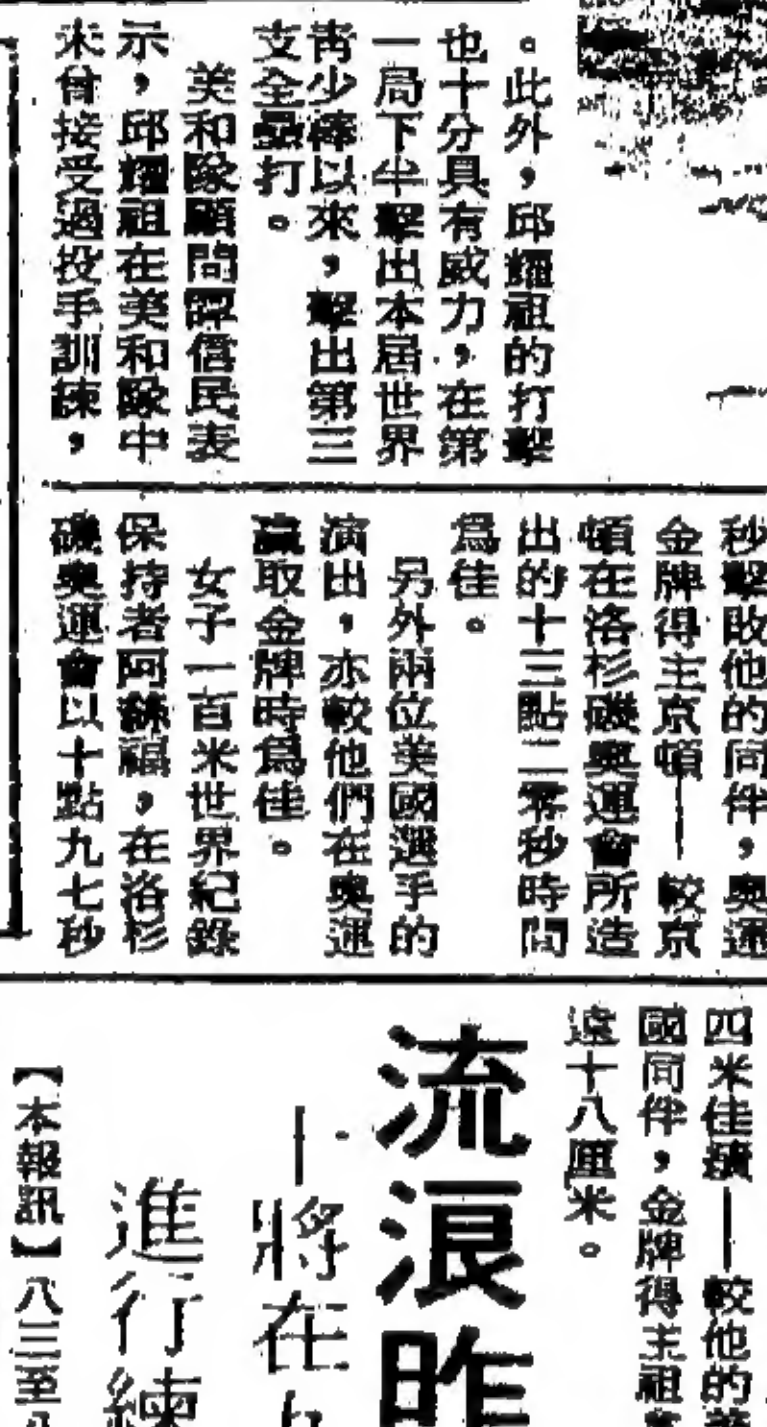 。此外，邱耀祖的打擊
也十分具有威力，在第
一局下半擊出本屆世界
青少棒以來，擊出第三
支全壘打。
美和隊顧問譚信民表
示，邱耀祖在美和隊中
未曾接受過投手訓練，
秒擊敗他的同伴，奧運
金牌得主京頓——較京
頓在洛杉磯奧運會所造
出的十三點二零秒時間
為佳。
另外兩位美國選手的
演出，亦較他們在奧運
贏取金牌時為佳。
女子一百米世界紀錄
保持者阿絲福，在洛杉
磯奧運會以十點九七秒
四米佳績——較他的美
國同伴，金牌得主祖
遠十八厘米。
流浪昨
—將在
進行練
【本報訊】八三至八